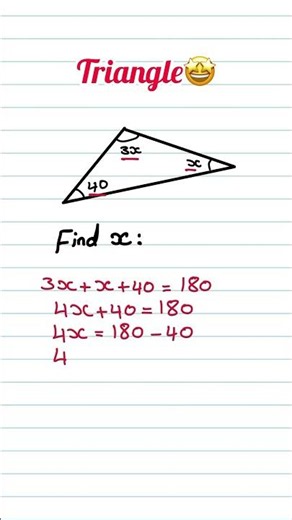 Triangle🤩
3x
x
40
Find x:
3x + x + 40 = 180
4x + 40 = 180
4x = 180 - 40
4